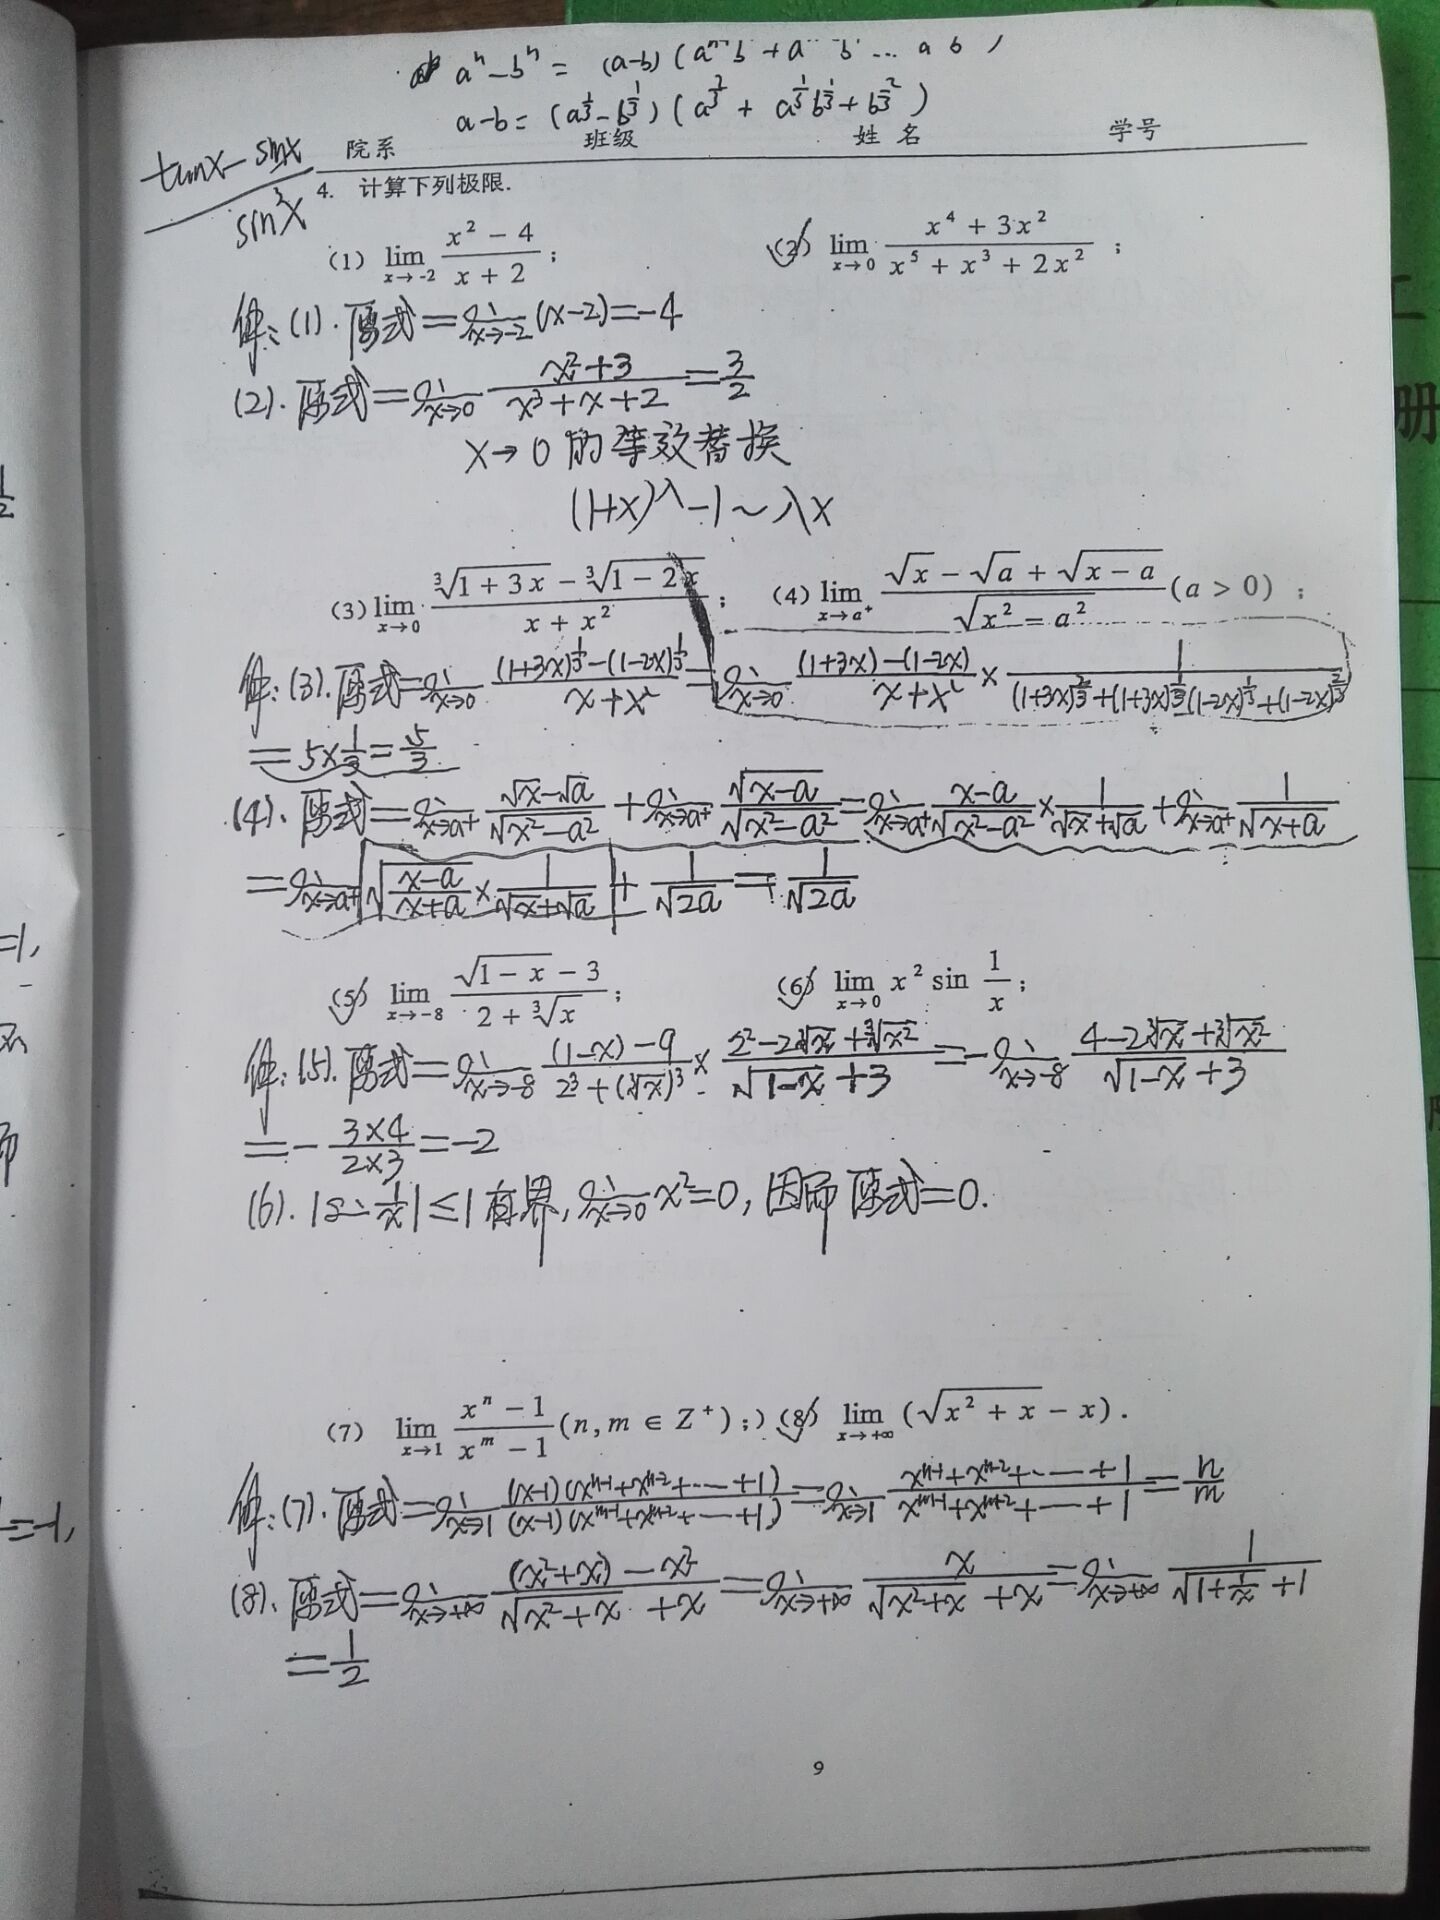 aⁿ-bⁿ = (a-b)(
a-b=(a^{1/3}-b^{1/3})(a^{2/3}+a^{1/3}b^{1/3}+b^{2/3})
院系 班级 姓名 学号
(tanx-sinx)/sin³x
4. 计算下列极限.
(1) lim_{x→-2} (x²-4)/(x+2); (2) lim_{x→0} (x⁴+3x²)/(x⁵+x³+2x²);
解:(1).原式=lim_{x→-2}(x-2)=-4
(2).原式=lim_{x→0} (x²+3)/(x³+x+2)=3/2
x→0的等效替换
(1+x)^λ-1~λx
(3) lim_{x→0} (∛(1+3x)-∛(1-2x))/(x+x²); (4) lim_{x→a⁺} (√x-√a+√(x-a))/√(x²=a²) (a>0);
解:(3).原式=lim_{x→0} ((1+3x)^{1/3}-(1-2x)^{1/3})/(x+x²)=lim_{x→0} ((1+3x)-(1-2x))/(x+x²)×1/((1+3x)^{2/3}+(1+3x)^{1/3}(1-2x)^{1/3}+(1-2x)^{2/3})
=5×1/3=5/3
(4).原式=lim_{x→a⁺} (√x-√a)/√(x²-a²)+lim_{x→a⁺} √(x-a)/√(x²-a²)=lim_{x→a⁺} (x-a)/√(x²-a²)×1/(√x+√a)+lim_{x→a⁺} 1/√(x+a)
=lim_{x→a⁺} √((x-a)/(x+a))×1/(√x+√a)+1/√(2a)=1/√(2a)
(5) lim_{x→-8} (√(1-x)-3)/(2+∛x); (6) lim_{x→0} x² sin 1/x;
解:(5).原式=lim_{x→-8} ((1-x)-9)/(2³+(∛x)³)×(2²-2∛x+∛x²)/(√(1-x)+3)=-lim_{x→-8} (4-2∛x+∛x²)/(√(1-x)+3)
=-(3×4)/(2×3)=-2
(6).|sin 1/x|≤1有界,lim_{x→0}x²=0,因而原式=0.
(7) lim_{x→1} (xⁿ-1)/(x^m-1) (n,m∈Z⁺);) (8) lim_{x→+∞} (√(x²+x)-x).
解:(7).原式=lim_{x→1} ((x-1)(x^{n-1}+x^{n-2}+…+1))/((x-1)(x^{m-1}+x^{m-2}+…+1))=lim_{x→1} (x^{n-1}+x^{n-2}+…+1)/(x^{m-1}+x^{m-2}+…+1)=n/m
(8).原式=lim_{x→+∞} ((x²+x)-x²)/(√(x²+x)+x)=lim_{x→+∞} x/(√(x²+x)+x)=lim_{x→+∞} 1/(√(1+1/x)+1)
=1/2
9
册